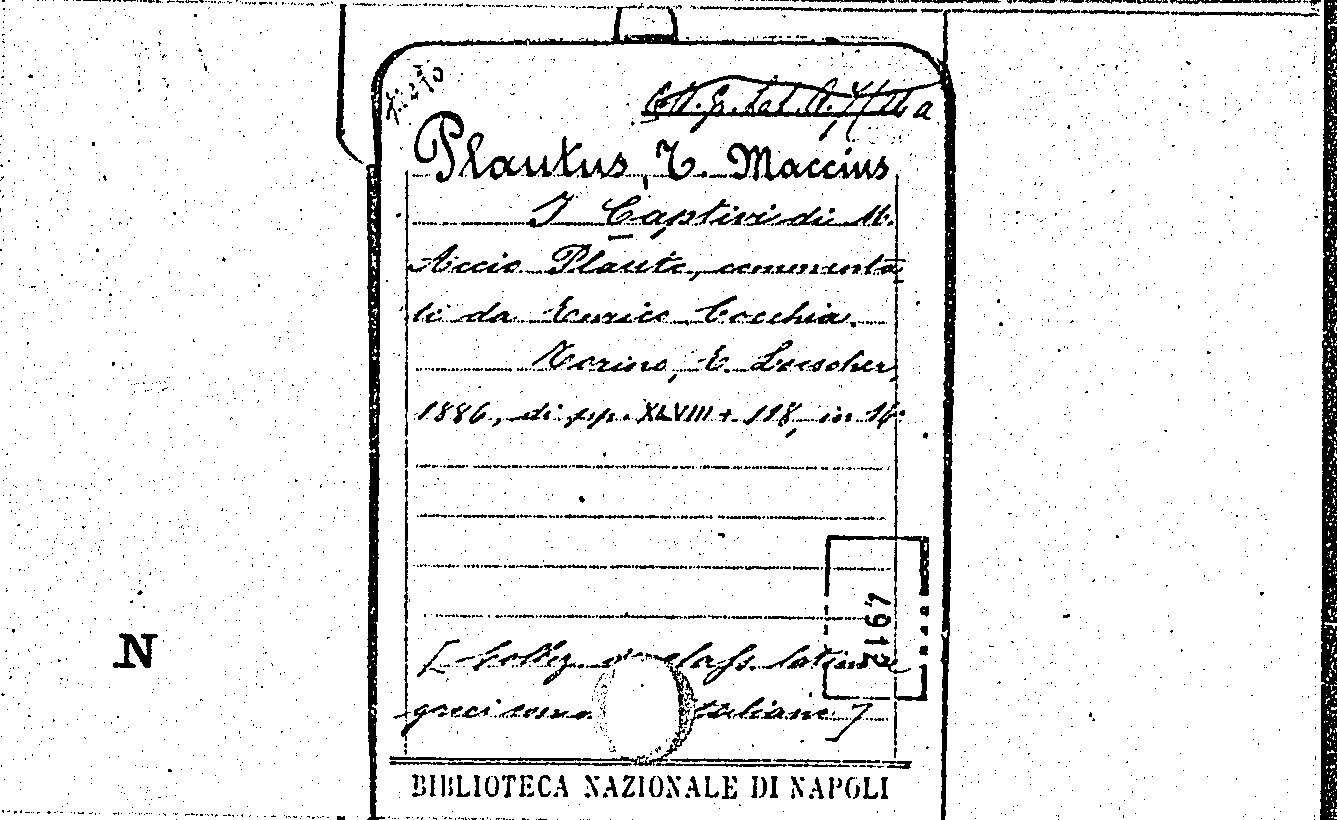 Plautus, T. Maccius
I Captivi di M.
Accio Plauto, commenta=
ti da Enrico Cocchia.
Torino, E. Loescher,
1886, di pp. XLVIII + 118, in 16°
4912
[Collez. di class. latini e
greci comm italiane]
N
BIBLIOTECA NAZIONALE DI NAPOLI